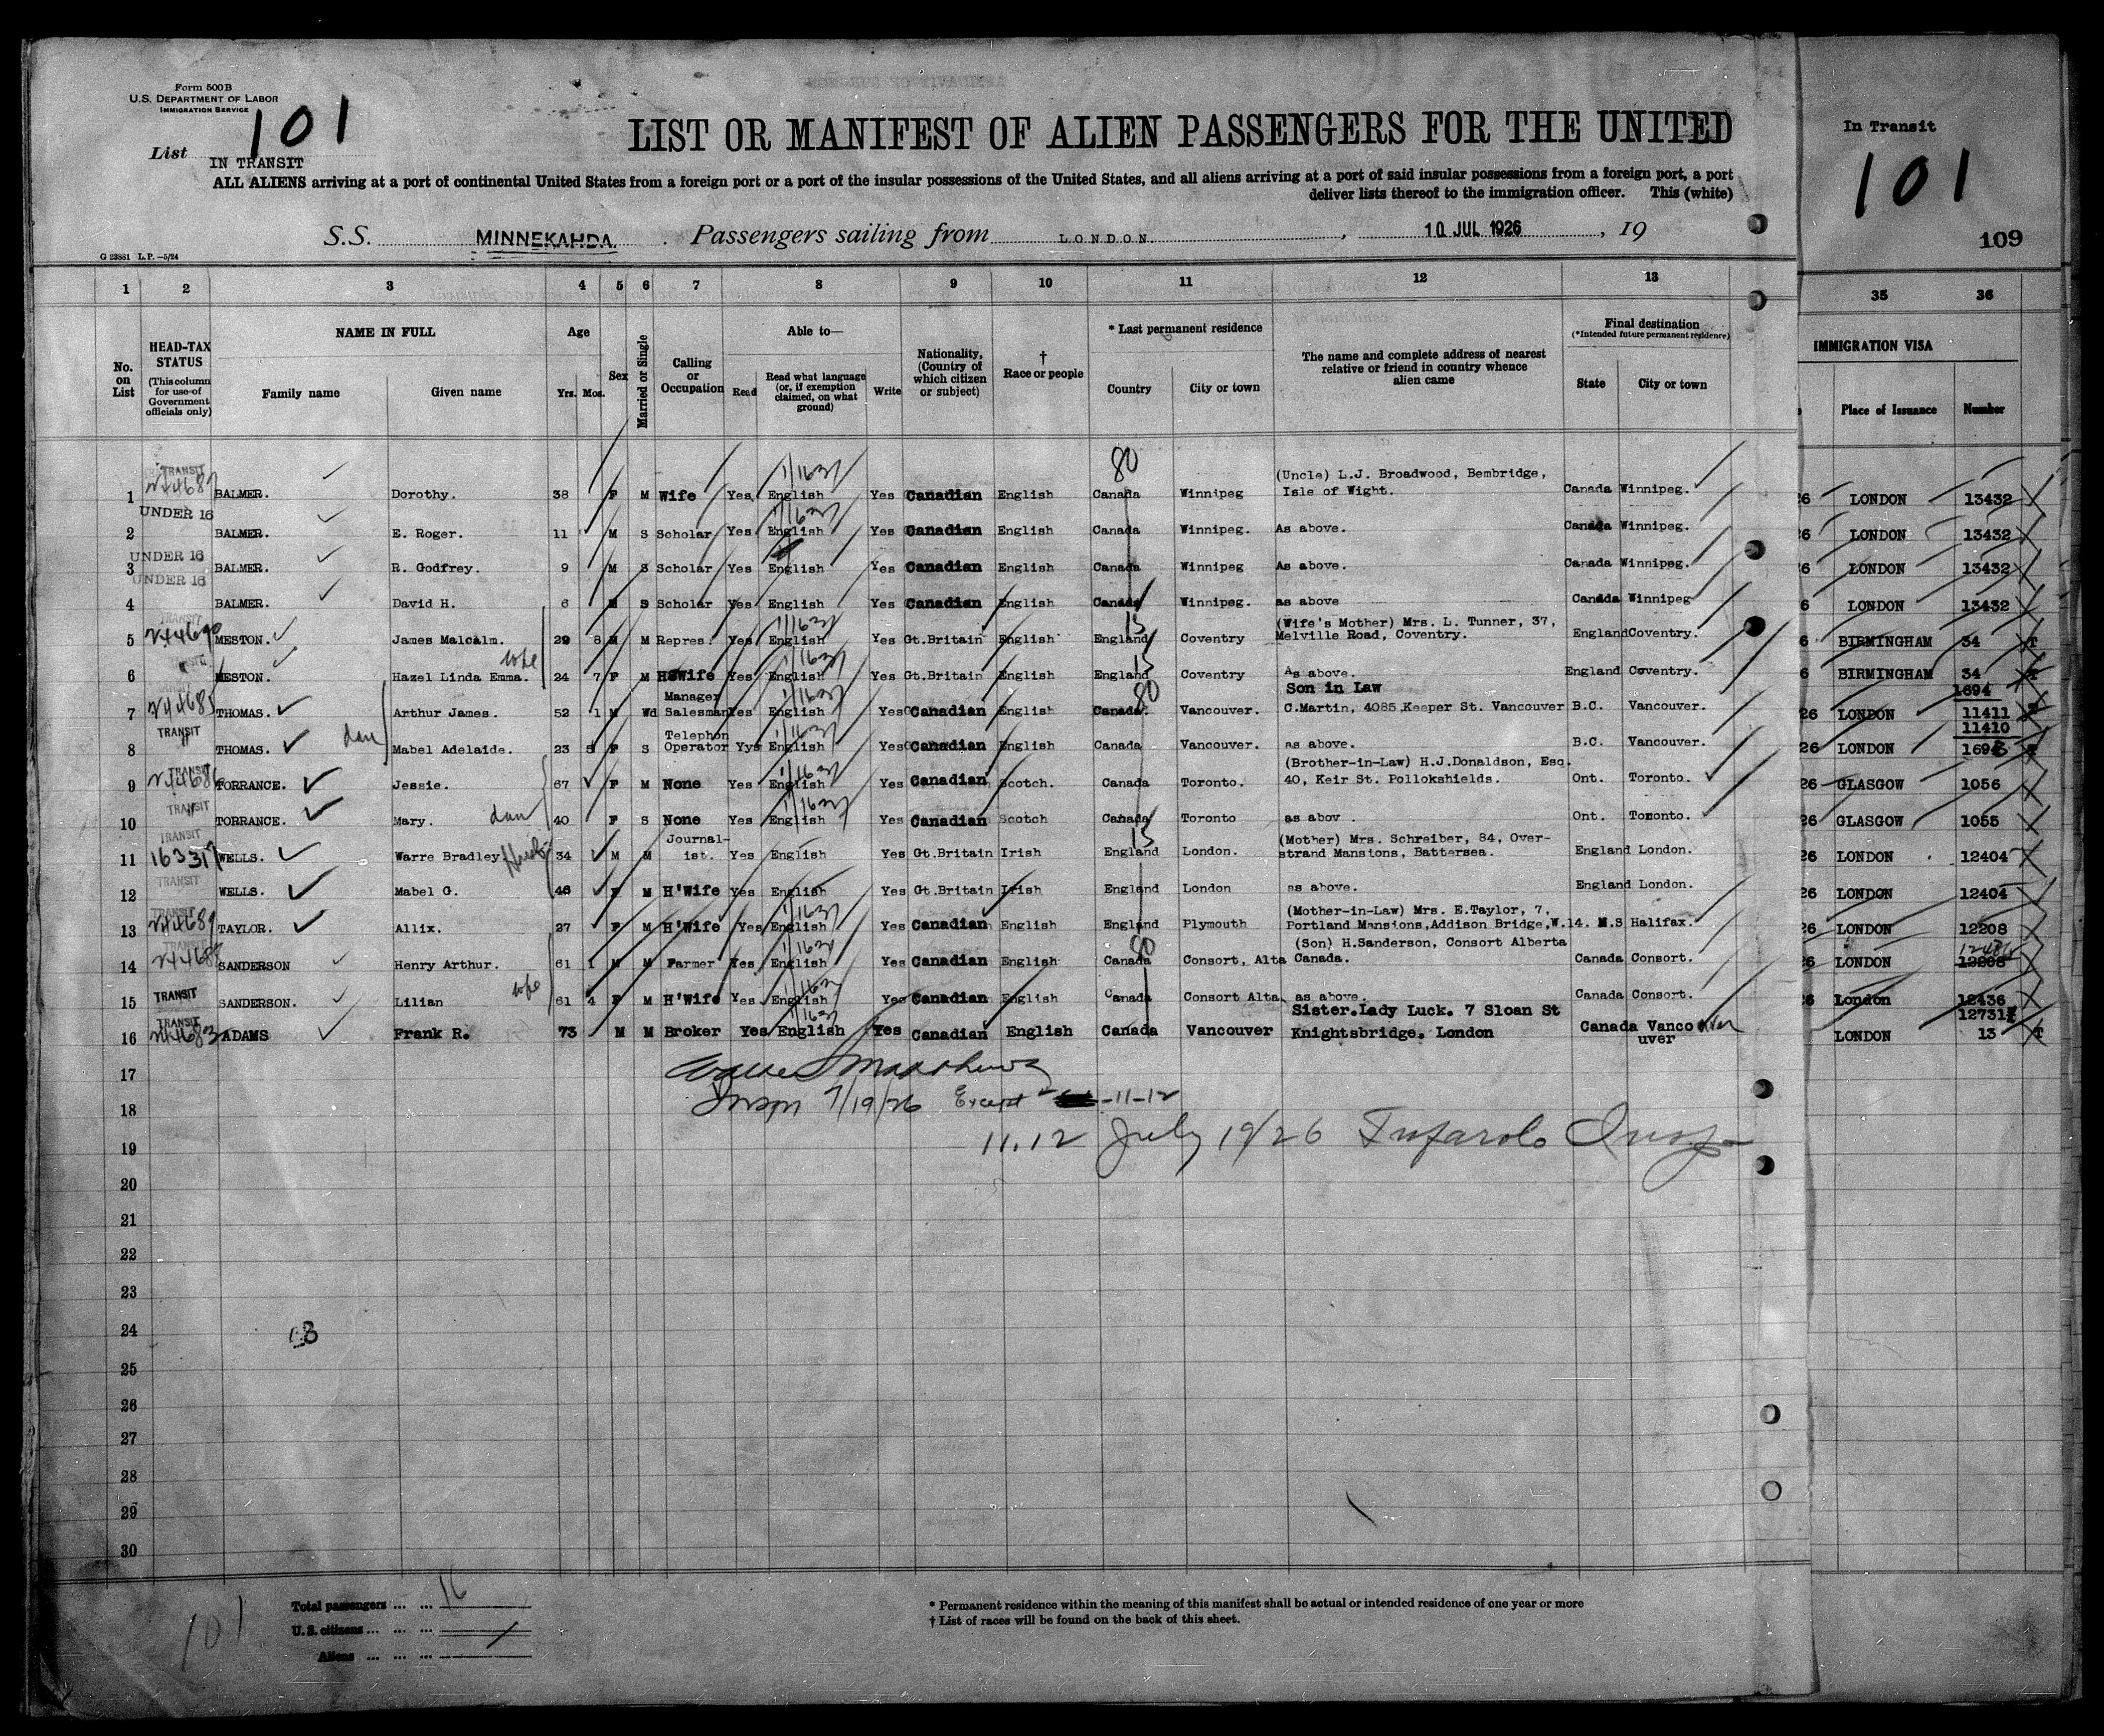 Form 500B
U.S. DEPARTMENT OF LABOR
IMMIGRATION SERVICE
List 101
IN TRANSIT
LIST OR MANIFEST OF ALIEN PASSENGERS FOR THE UNITED
ALL ALIENS arriving at a port of continental United States from a foreign port or a port of the insular possessions of the United States, and all aliens arriving at a port of said insular possessions from a foreign port, a port
deliver lists thereof to the immigration officer. This (white)
S.S. MINNEKAHDA. Passengers sailing from LONDON. , 10 JUL 1926 , 19
G 23881 L.P.—5/24
In Transit
101
109
1 2 3 4 5 6 7 8 9 10 11 12 13 35 36
No. on List
HEAD-TAX STATUS (This column for use of Government officials only)
NAME IN FULL
Family name Given name
Age
Yrs. Mos.
Sex
Married or Single
Calling or Occupation
Able to—
Read Read what language (or, if exemption claimed, on what ground) Write
Nationality, (Country of which citizen or subject)
† Race or people
* Last permanent residence
Country City or town
The name and complete address of nearest relative or friend in country whence alien came
Final destination
(*Intended future permanent residence)
State City or town
IMMIGRATION VISA
Place of Issuance Number
TRANSIT 80 1/1637 (Uncle) L.J. Broadwood, Bembridge,
1 BALMER. Dorothy. 38 F M Wife Yes English Yes Canadian English Canada Winnipeg Isle of Wight. Canada Winnipeg. 26 LONDON 13432
UNDER 16
2 BALMER. E. Roger. 11 M S Scholar Yes English Yes Canadian English Canada Winnipeg. As above. Canada Winnipeg. 26 LONDON 13432
UNDER 16
3 BALMER. R. Godfrey. 9 M S Scholar Yes English Yes Canadian English Canada Winnipeg As above. Canada Winnipeg. 26 LONDON 13432
UNDER 16
4 BALMER. David H. 6 M S Scholar Yes English Yes Canadian English Canada Winnipeg. as above Canada Winnipeg 6 LONDON 13432
244690 15 (Wife's Mother) Mrs. L. Tunner, 37,
5 MESTON. James Malcalm. 29 8 M M Repres. Yes English Yes Gt.Britain English England Coventry Melville Road, Coventry. England Coventry. 6 BIRMINGHAM 34
wife 15
6 MESTON. Hazel Linda Emma. 24 7 F M HSWife Yes English Yes Gt.Britain English England Coventry As above. England Coventry. 6 BIRMINGHAM 34
244685 Manager 80 Son in Law 1694
7 THOMAS. Arthur James. 52 1 M Wd Salesman Yes English Yes Canadian English Canada. Vancouver. C.Martin, 4085 Keeper St. Vancouver B.C. Vancouver. 26 LONDON 11411
TRANSIT dau Telephon 11410
8 THOMAS. Mabel Adelaide. 23 5 F S Operator Yys English Yes Canadian English Canada Vancouver. as above. B.C. Vancouver. 26 LONDON 1693
TRANSIT 244686 (Brother-in-Law) H.J.Donaldson, Esq.
9 TORRANCE. Jessie. 67 F M None Yes English Yes Canadian Scotch. Canada Toronto. 40, Keir St. Pollokshields. Ont. Toronto. 26 GLASGOW 1056
TRANSIT dau
10 TORRANCE. Mary. 40 F S None Yes English Yes Canadian Scotch Canada Toronto as abov . Ont. Toronto. 26 GLASGOW 1055
TRANSIT 163317 Journal- 15 (Mother) Mrs. Schreiber, 84, Over-
11 WELLS. Warre Bradley. 34 M M ist. Yes English Yes Gt.Britain Irish England London. strand Mansions, Battersea. England London. 26 LONDON 12404
TRANSIT
12 WELLS. Mabel G. 46 F M H'Wife Yes English Yes Gt.Britain Irish England London as above. England London. 26 LONDON 12404
TRANSIT 244689 (Mother-in-Law) Mrs. E.Taylor, 7,
13 TAYLOR. Allix. 27 F M H'Wife Yes English Yes Canadian English England Plymouth Portland Mansions,Addison Bridge,W.14. N.S Halifax. 26 LONDON 12208
TRANSIT 244688 80 (Son) H.Sanderson, Consort Alberta 12436
14 SANDERSON Henry Arthur. 61 1 M M Farmer Yes English Yes Canadian English Canada Consort, Alta Canada. Canada Consort. 26 LONDON 12208
TRANSIT wife
15 SANDERSON. Lilian 61 4 F M H'Wife Yes. English Yes Canadian English Canada Consort Alta. as above. Canada Consort. 26 London 12436
TRANSIT 244683 Sister.Lady Luck. 7 Sloan St 12731
16 ADAMS Frank R. 73 M M Broker Yes English Yes Canadian English Canada Vancouver Knightsbridge. London Canada Vanco uver LONDON 13
17
18 Insp 7/19/26 Except -11-12
19 11.12 July 19/26 Insp
20
21
22
23
24
25
26
27
28
29
30
Total passengers ... ... 16
U.S. citizens ... ... ...
Aliens ... ... ...
101
* Permanent residence within the meaning of this manifest shall be actual or intended residence of one year or more
† List of races will be found on the back of this sheet.